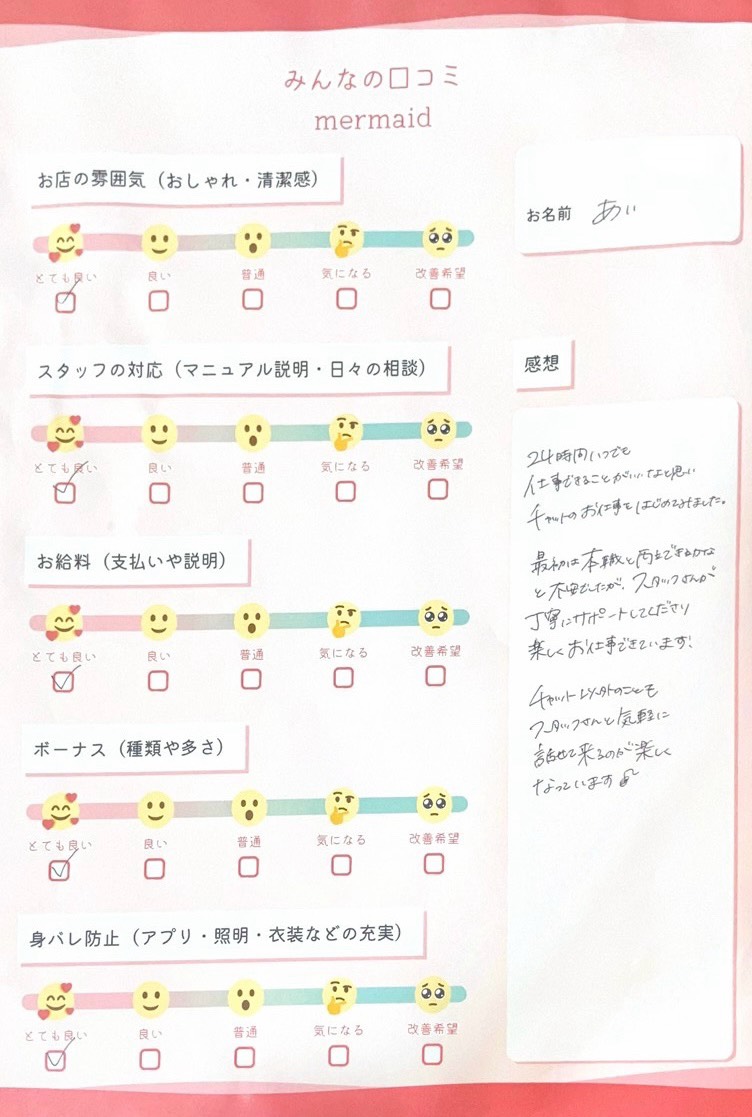 みんなの口コミ
mermaid
お店の雰囲気（おしゃれ・清潔感）
とても良い 良い 普通 気になる 改善希望
スタッフの対応（マニュアル説明・日々の相談）
とても良い 良い 普通 気になる 改善希望
お給料（支払いや説明）
とても良い 良い 普通 気になる 改善希望
ボーナス（種類や多さ）
とても良い 良い 普通 気になる 改善希望
身バレ防止（アプリ・照明・衣装などの充実）
とても良い 良い 普通 気になる 改善希望
お名前 あい
感想
24時間いつでも
仕事できることがいいなと思い
チャットのお仕事をはじめてみました。
最初は本職と両立できるかな
と不安でしたが、スタッフさんが
丁寧にサポートしてくださり
楽しくお仕事できています!
チャット以外のことも
スタッフさんと気軽に
話せて来るのが楽しく
なっています